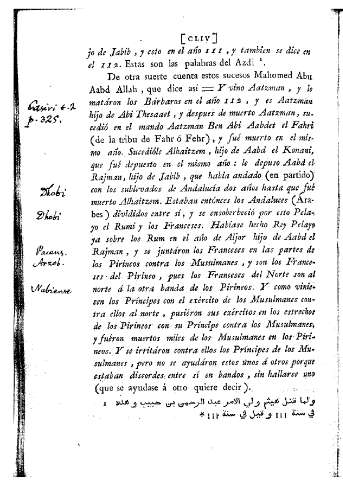 [CLIV]
jo de Jabib, y esto en el año 111, y tambien se dice en
el 112. Estas son las palabras del Azdi ¹.
De otra suerte cuenta estos sucesos Mahomed Abu
Aabd Allah, que dice asi = Y vino Aatzman, y lo
matáron los Bárbaros en el año 112, y es Aatzman
hijo de Abi Thesaat, y despues de muerto Aatzman, su-
cedió en el mando Aatzman Ben Abi Aabdet el Fahri
(de la tribu de Fahr ó Fehr), y fué muerto en el mis-
mo año. Sucedióle Alhaitzem, hijo de Aabd el Konani,
que fué depuesto en el mismo año: le depuso Aabd el
Rajman, hijo de Jabib, que habla andado (en partido)
con los sublevados de Andalucía dos años hasta que fué
muerto Alhaitzem. Estaban entónces los Andaluces (Ara-
bes) divididos entre sí, y se ensoberbeció por esto Pela-
yo el Rumi y los Franceses. Habíase hecho Rey Pelayo
ya sobre los Rum en el año de Aljor hijo de Aabd el
Rajman, y se juntáron los Franceses en las partes de
los Pirineos contra los Musulmanes, y son los France-
ses del Pirineo, pues los Franceses del Norte son al
norte á la otra banda de los Pirineos. Y como vinie-
sen los Príncipes con el exército de los Musulmanes con-
tra ellos al norte, pusiéron sus exércitos en los estrechos
de los Pirineos con su Príncipe contra los Musulmanes,
y fuéron muertos miles de los Musulmanes en los Piri-
neos. Y se irritáron contra ellos los Príncipes de los Mu-
sulmanes, pero no se ayudáron estos unos á otros porque
estaban discordes entre sí en bandos, sin hallarse uno
(que se ayudase á otro quiere decir).
ولما قتل هيثم ولي الامر عبد الرحمن بن حبيب وهذه
في سنة ١١١ و قيل في سنة ١١٢ *
Casiri t. 2
p. 325.
Dhobi
Dhobi
Nubiense